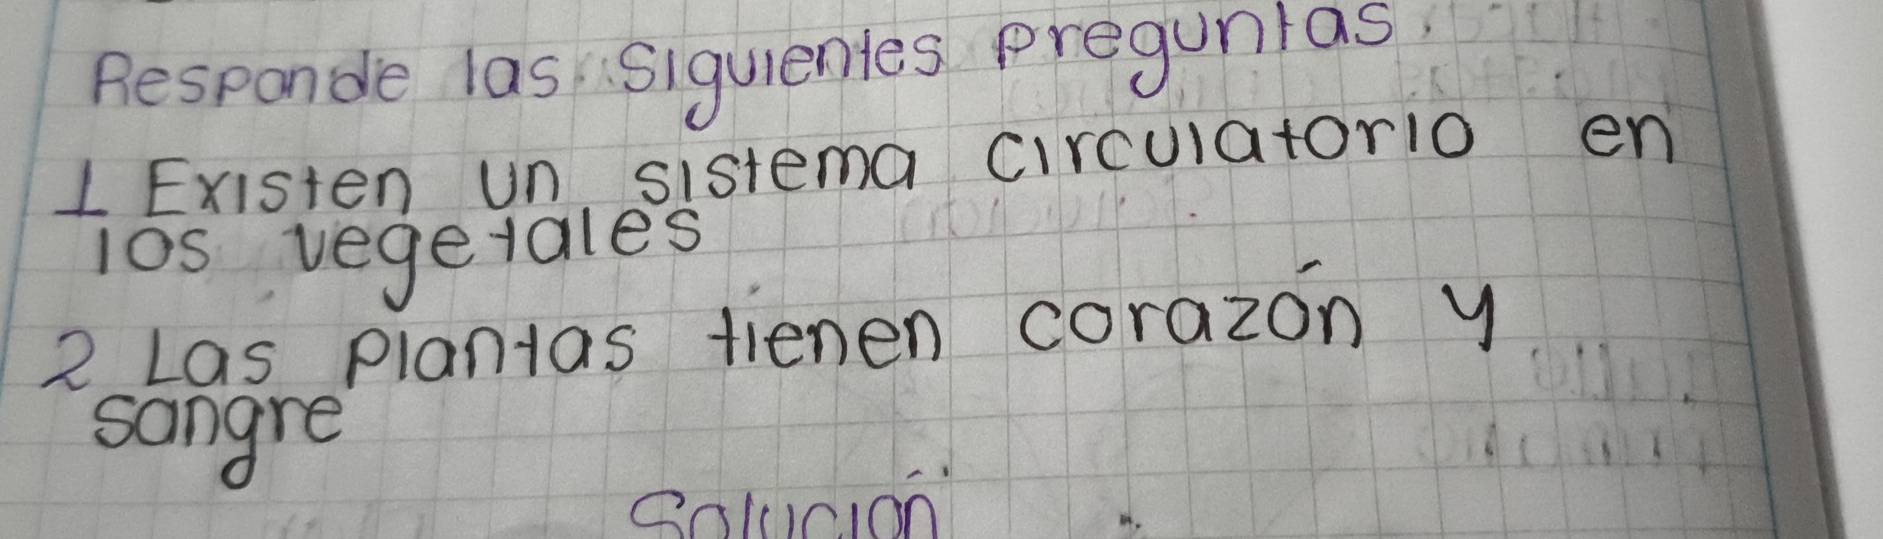 Responde las siguientes preguntas.
1 Existen un sistema circulatorio en
los vegetales
2 Las plantas tienen corazón y
sangre
Solución